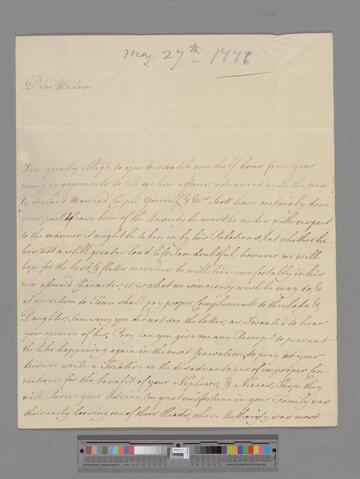 May 27th 1776
Dear Madam
I am greatly oblig'd to you to snatch one half hour from your
many engagements to tell me how affairs advances with the new
ly declar'd Married Couple, Yourself & Mrs Scott have certainly done
your part to ease him of the Anxiety he must be under with respect
to the manner it might be taken in by his Relations, but whether he
has not a still greater load left I am doubtfull, however we will
hope for the best & flatter ourselves he will live comfortably in his
new assumed Character, it is what we sincerely wish he may do &
at our return to Town shall pay proper Compliments to the Lady &
Daughter, I am sorry you did not see the latter, as I wanted to hear
your opinion of her, Pray can you give me any Receipt to prevent
the like happening again in the next Generation, do pray at your
leisure write a Treatise on the disadvantages of improper Con
nections for the benefit of your Nephews & Nieces, I hope they
will Revere your Advice, One great misfortune in your Family was
their early loosing one of their Heads, whose Authority was most